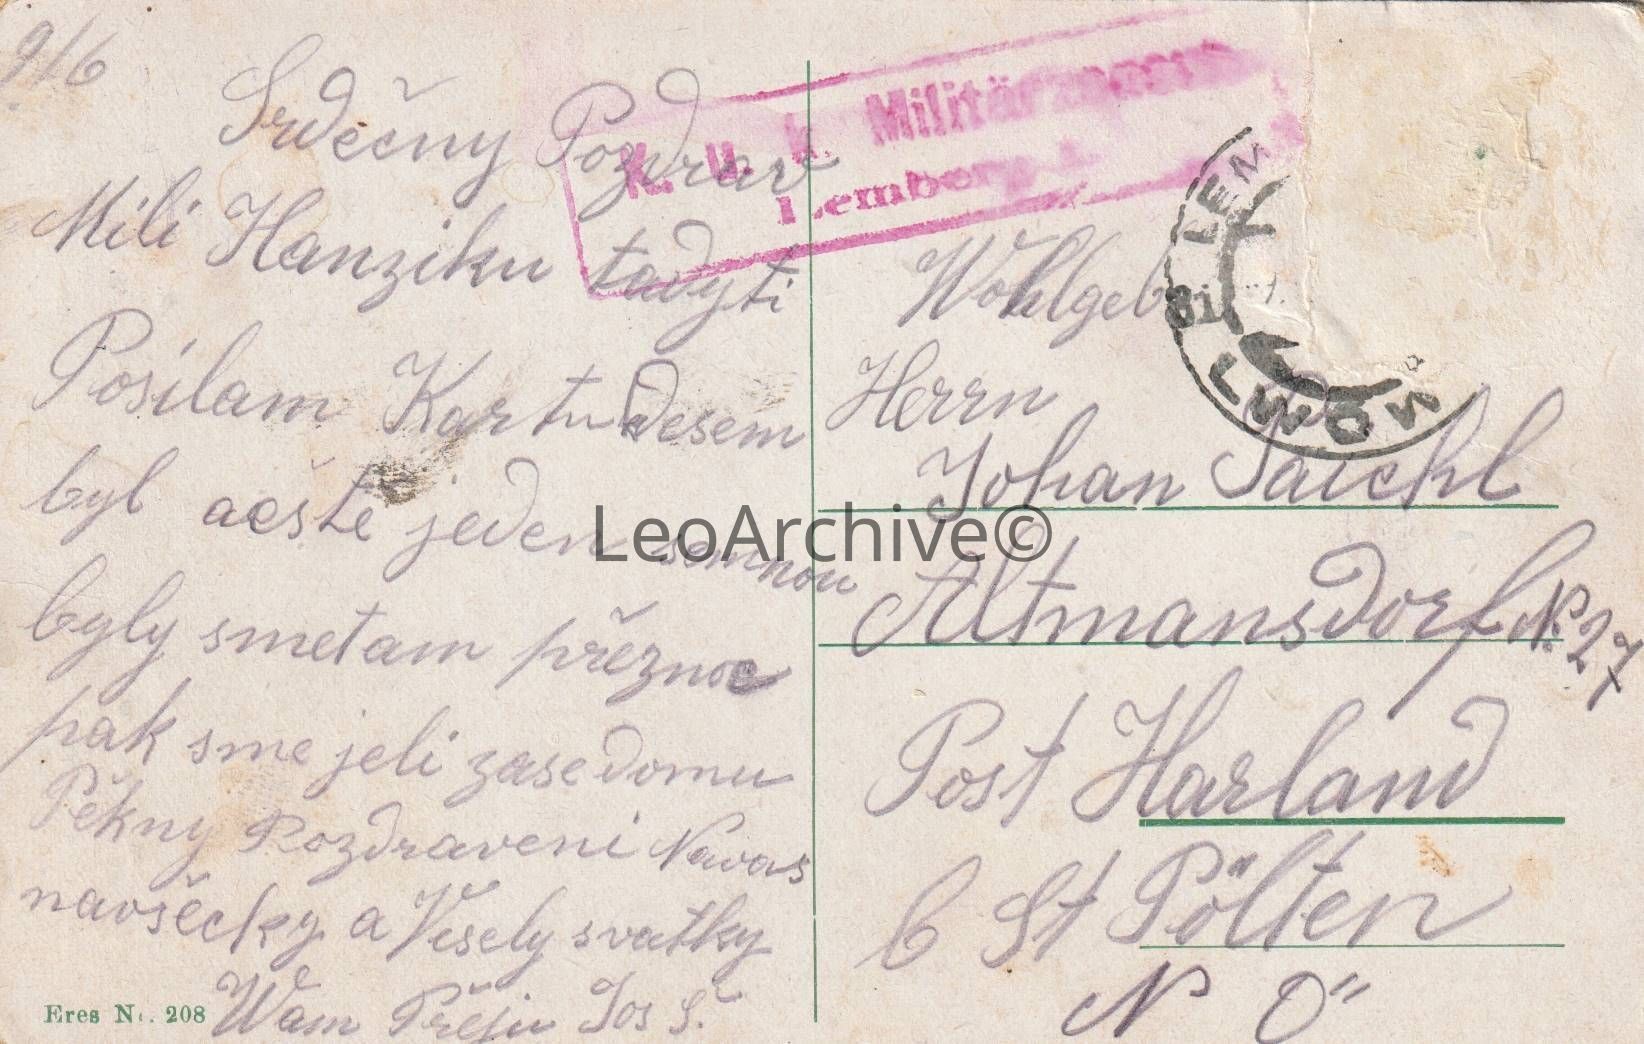 9/6
Srdečny Pozdrav
Mili Hanziku tadyti
Posilam Kartu desem
byl ačšte jeden semnou
byly smetam přeznoc
pak sme jeli zase domu
Pěkny Pozdraveni Navas
navšecky a Vesely svatky
Wam Přeju Jos Š.
Eres No. 208
K. u. k. Militärzensur
Lemberg
LEM
LWÓW
Wohlgeb
Herrn
Johan Saichl
Altmansdorf N. 27
Post Harland
b St Pölten
N Ö"
LeoArchive©